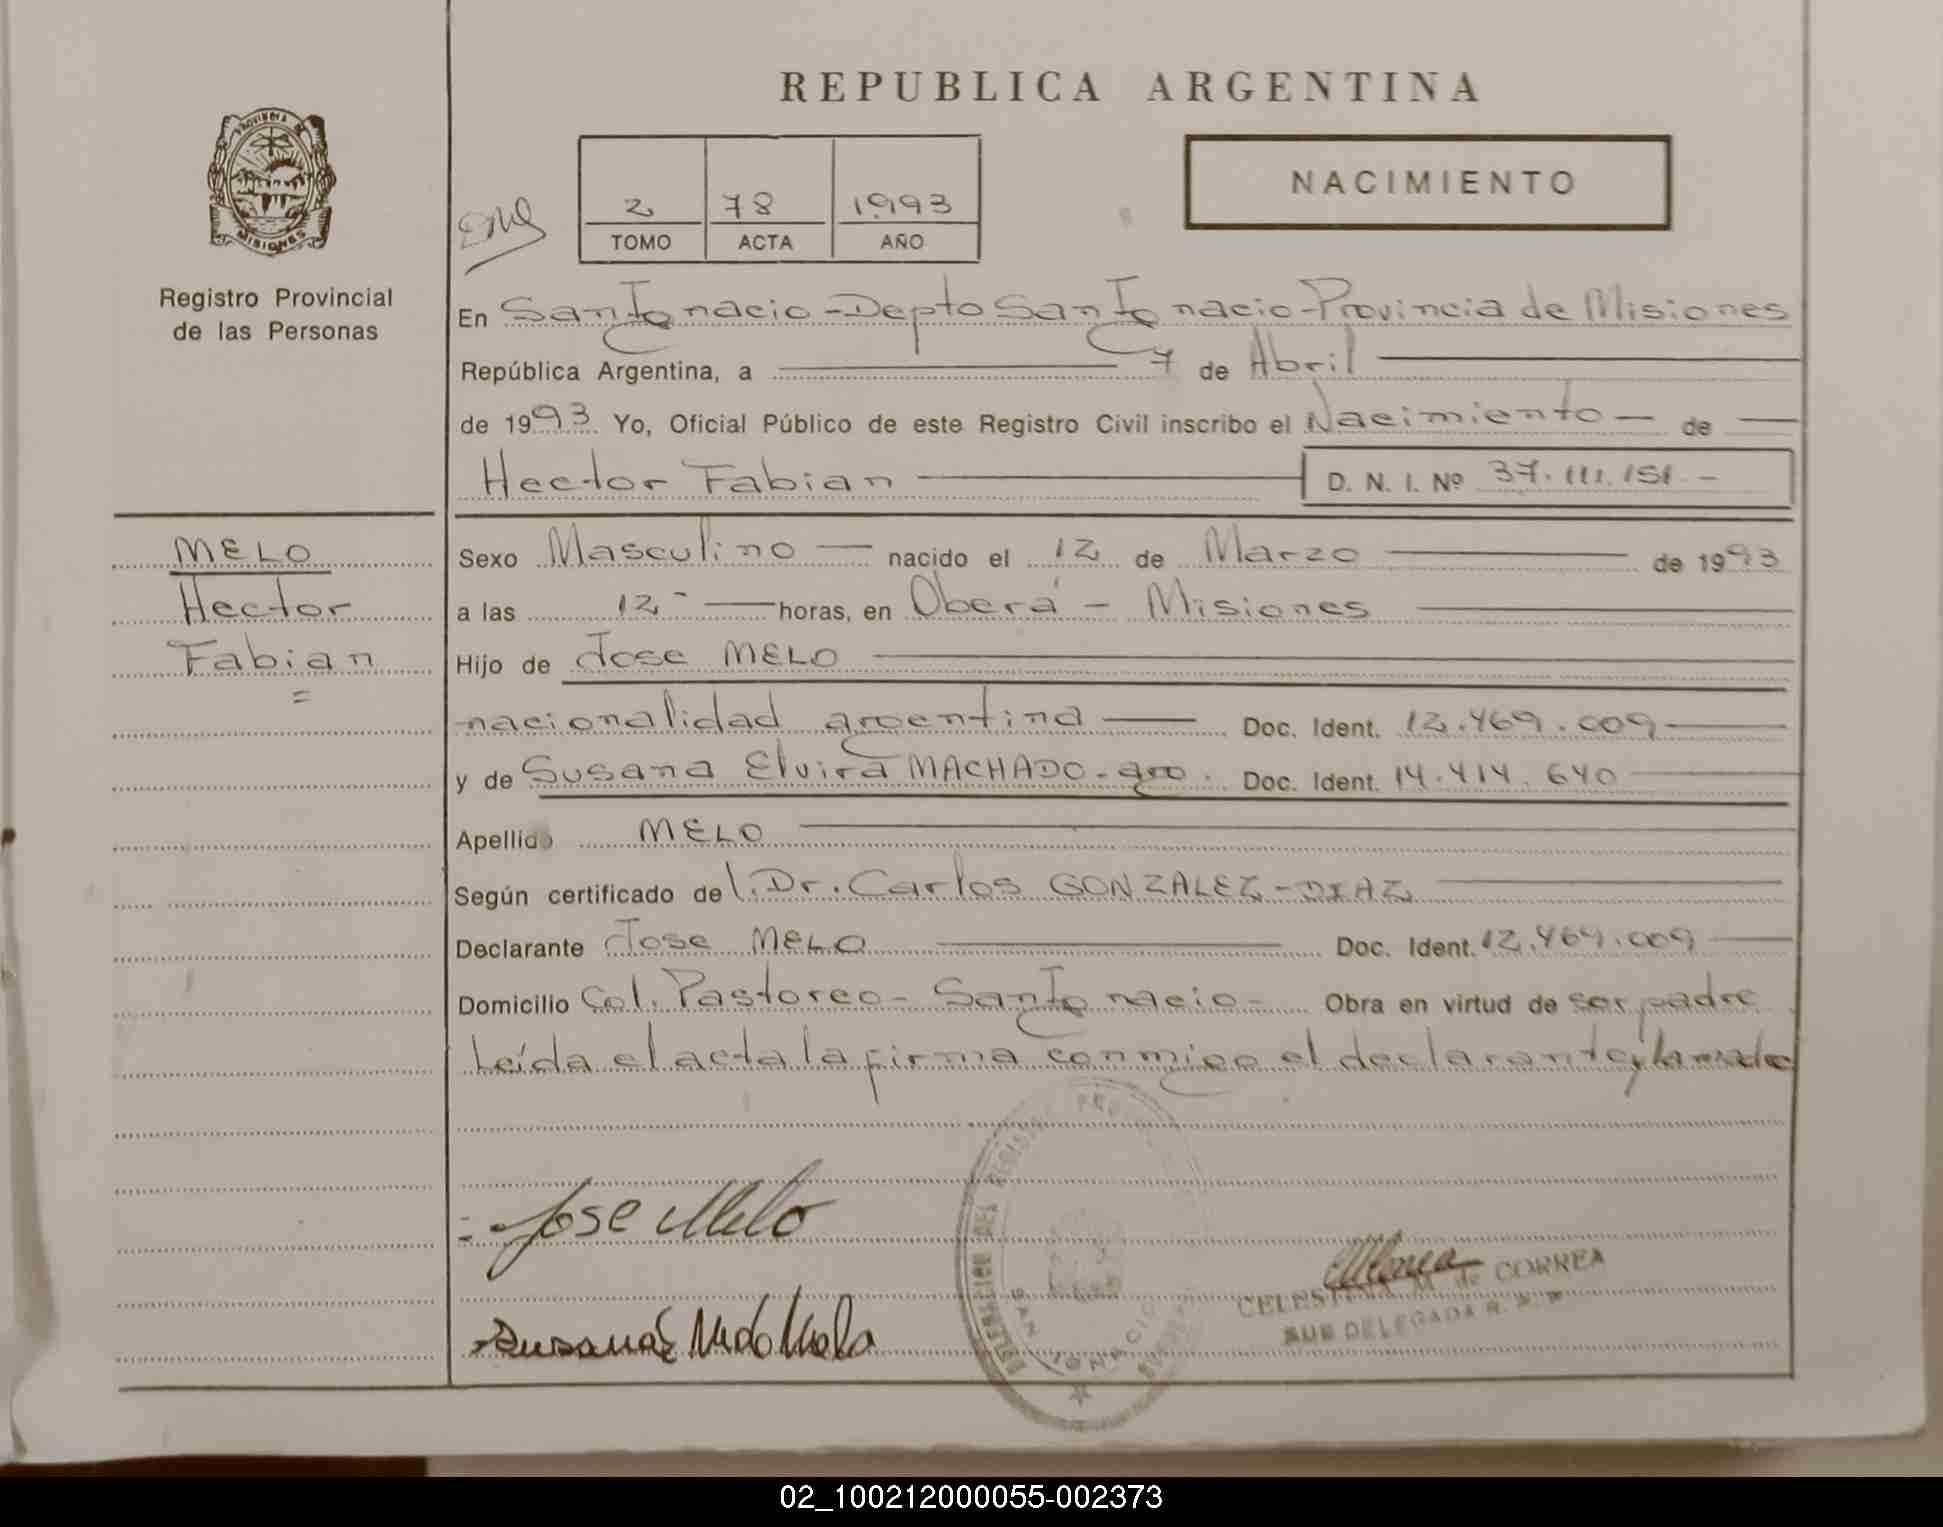 REPUBLICA ARGENTINA
PROVINCIA DE
MISIONES
Registro Provincial
de las Personas
2 78 1993
TOMO ACTA AÑO
NACIMIENTO
En San Ignacio - Depto San Ignacio - Provincia de Misiones
República Argentina, a 7 de Abril
de 1993 Yo, Oficial Público de este Registro Civil inscribo el Nacimiento - de
Hector Fabian D. N. I. Nº 37.111.151 -
MELO
Hector
Fabian
Sexo Masculino nacido el 12 de Marzo de 1993
a las 12 - horas, en Oberá - Misiones
Hijo de Jose MELO
nacionalidad argentina Doc. Ident. 12.469.009
y de Susana Elvira MACHADO - arg. Doc. Ident. 14.414.640
Apellido MELO
Según certificado de l. Dr. Carlos GONZALEZ - DIAZ
Declarante Jose MELO Doc. Ident. 12.469.009
Domicilio Col. Pastoreo - San Ignacio - Obra en virtud de ser padre
Leída el acta la firma conmigo el declarante y la madre
Jose Melo
DELEGACION DEL REGISTRO PROV
SAN IGNACIO
CELESTINA M. de CORREA
SUB DELEGADA R. P. P.
02_100212000055-002373